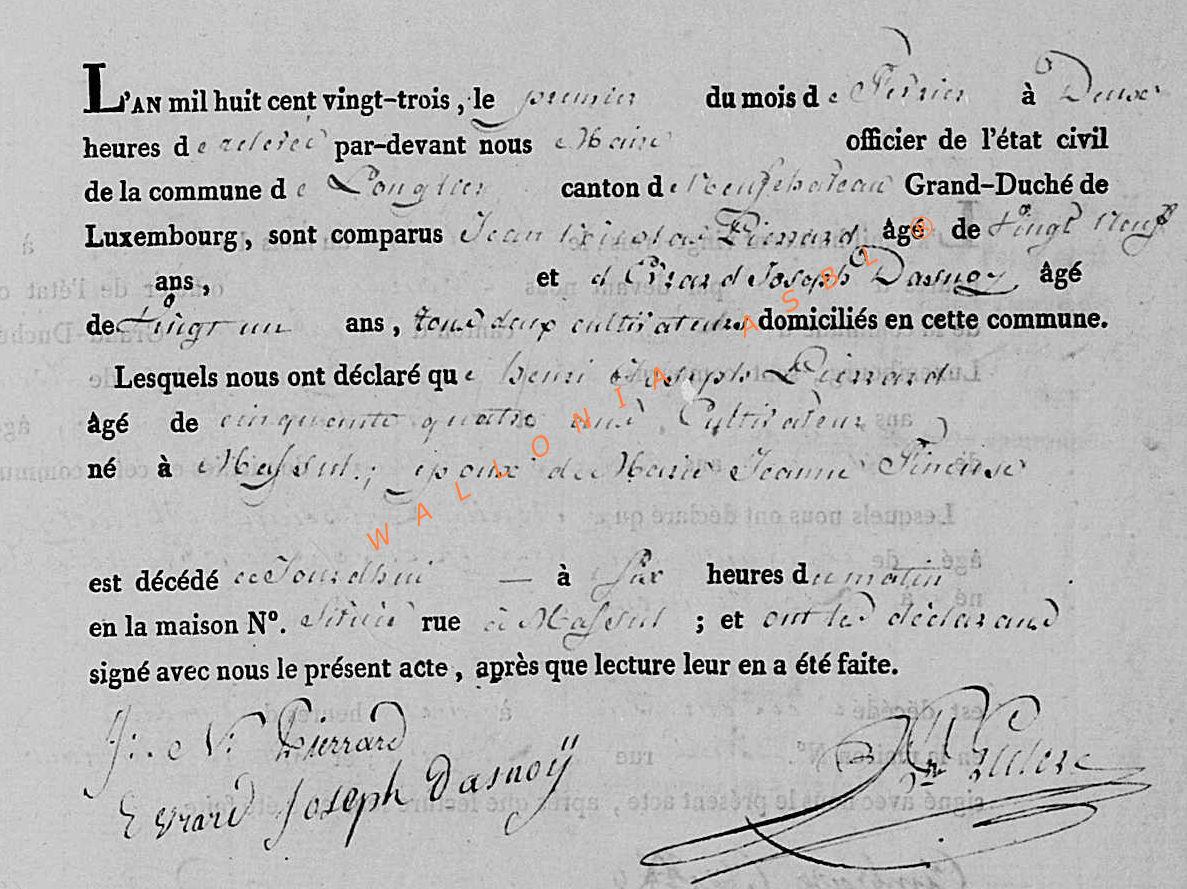 L'AN mil huit cent vingt-trois, le premier du mois de Fevrier à Deux
heures de relevée par-devant nous Maire officier de l'état civil
de la commune de Longlier canton de Neufchateau Grand-Duché de
Luxembourg, sont comparus Jean Nicolas Pierrard âgé de Vingt Neuf
ans, et d'Evrard Joseph Dasnoy âgé
de Vingt un ans, tous deux cultivateurs domiciliés en cette commune.
Lesquels nous ont déclaré que henri Joseph Pierrard
âgé de cinquante quatre ans, Cultivateur
né à Massul; epoux de Marie Jeanne
est décédé aujourdhui — à Six heures du matin
en la maison Nº. Située rue à Massul ; et ont les déclarans
signé avec nous le présent acte, après que lecture leur en a été faite.
J: N: Pierrard
Evrard Joseph Dasnoÿ
WALLONIA ASBL ®